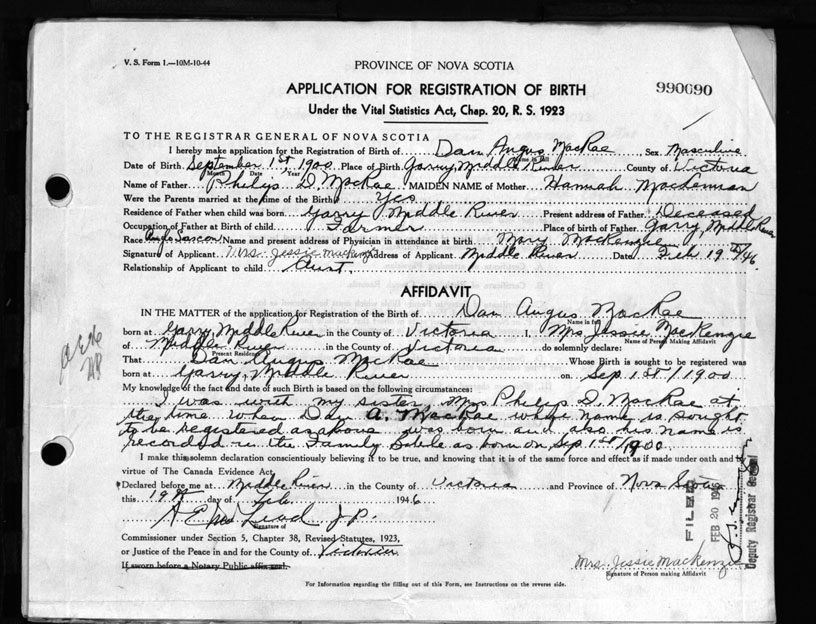 V. S. Form 1.—10M-10-44
PROVINCE OF NOVA SCOTIA
APPLICATION FOR REGISTRATION OF BIRTH
990690
Under the Vital Statistics Act, Chap. 20, R. S. 1923
TO THE REGISTRAR GENERAL OF NOVA SCOTIA
I hereby make application for the Registration of Birth of Dan Angus MacRae Sex Masculine
Name in full
Date of Birth September 1st, 1900 Place of Birth Garry, Middle River County of Victoria
Month Date Year
Name of Father Philip D. MacRae MAIDEN NAME of Mother Hannah MacLennan
Were the Parents married at the time of the Birth? Yes
Residence of Father when child was born Garry Middle River Present address of Father Deceased
Occupation of Father at Birth of child Farmer Place of birth of Father Garry, Middle River
Race Anglo Saxon Name and present address of Physician in attendance at birth Mary MacKenzie
Signature of Applicant Mrs. Jessie MacKenzie Address of Applicant Middle River Date Feb 19th/46.
Relationship of Applicant to child Aunt.
AFFIDAVIT
IN THE MATTER of the application for Registration of the Birth of Dan Angus MacRae
Name in full
born at Garry, Middle River in the County of Victoria I, Mrs Jessie MacKenzie
Name of Person Making Affidavit
of Middle River in the County of Victoria do solemnly declare:
Present Residence
That Dan Angus MacRae Whose Birth is sought to be registered was
born at Garry, Middle River on Sep. 1st/1900
My knowledge of the fact and date of such Birth is based on the following circumstances:
I was with my sister, Mrs Philip D. MacRae at
the time when Dan A. MacRae whose name is sought
to be registered as above was born and also his name is
recorded in the Family Bible as born on Sep. 1st/1900
I make this solemn declaration conscientiously believing it to be true, and knowing that it is of the same force and effect as if made under oath and by
virtue of The Canada Evidence Act.
Declared before me at Middle River in the County of Victoria and Province of Nova Scotia
this 19th day of Feb. 1946
A E MacLeod J.P.
Signature of
Commissioner under Section 5, Chapter 38, Revised Statutes, 1923,
or Justice of the Peace in and for the County of Victoria
If sworn before a Notary Public affix seal.
FILED
FEB 20 1946
Deputy Registrar General
Mrs. Jessie MacKenzie
Signature of Person making Affidavit
For Information regarding the filling out of this Form, see Instructions on the reverse side.